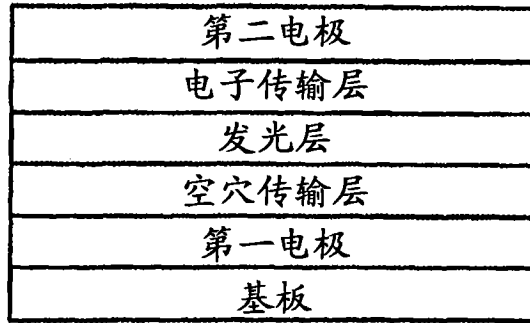 第二电极
电子传输层
发光层
空穴传输层
第一电极
基板